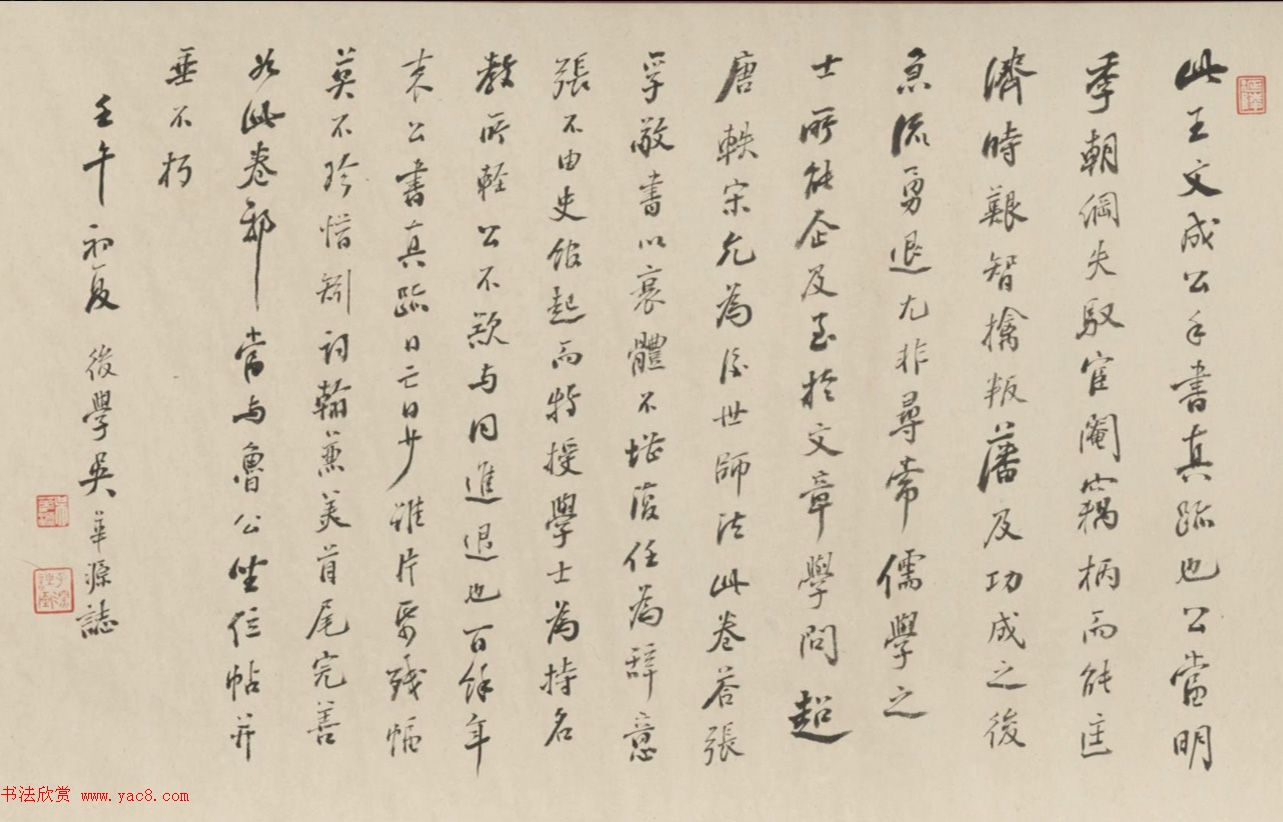 此王文成公手書真跡也公當明
季朝綱失馭宦閹竊柄而能匡
濟時艱智擒叛藩及功成之後
急流勇退尤非尋常儒學之
士所能企及至於文章學問超
唐軼宋允為後世師法此卷答張
孚敬書以衰體不堪復任為辭意
張不由史館起而特授學士為持名
教所輕公不欲与同進退也百餘年
来公書真跡日亡日少雖片紙殘幅
莫不珍惜矧詞翰兼美首尾完善
如此卷邪當与魯公坐位帖并
垂不朽
壬午初夏後學吳華源誌
书法欣赏 www.yac8.com